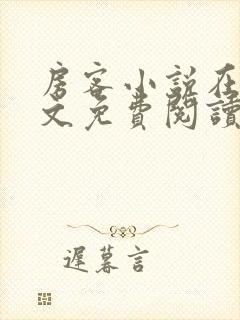 房客小说在
文免費閱讀
遲暮言